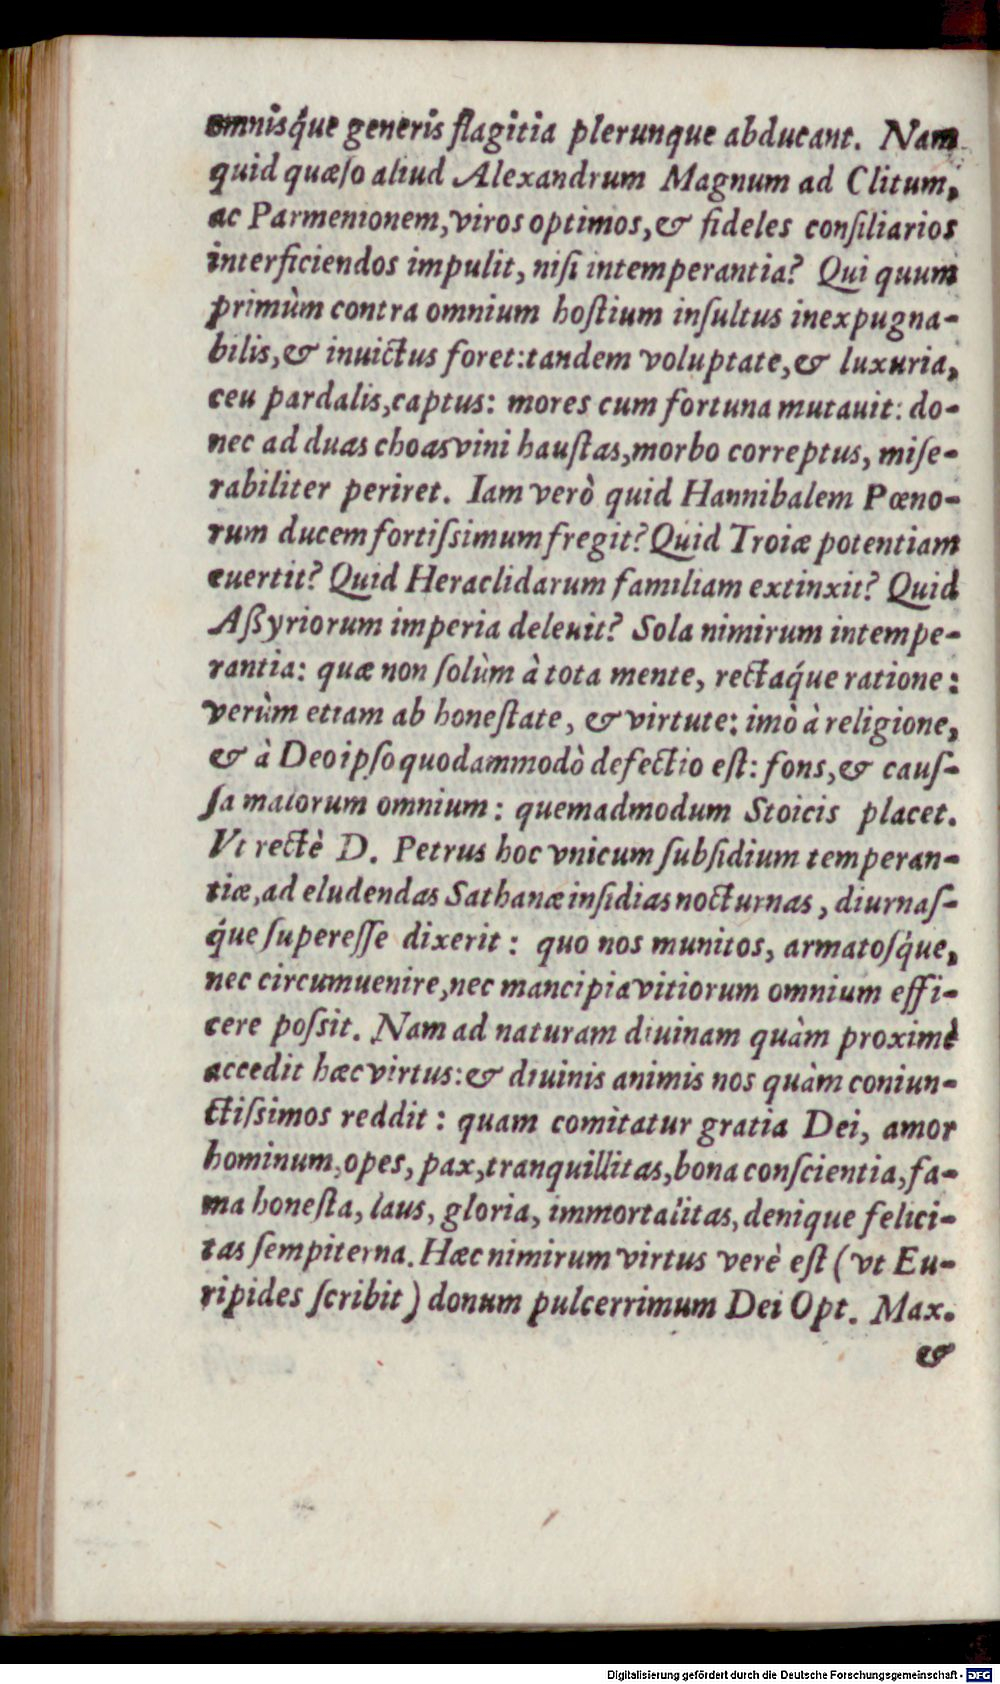 omnisq́ue generis flagitia plerunque abducant. Nam
quid quæſo aliud Alexandrum Magnum ad Clitum,
ac Parmenionem, viros optimos, & fideles conſiliarios
interficiendos impulit, niſi intemperantia? Qui quum
primùm contra omnium hoſtium inſultus inexpugna-
bilis, & inuictus foret: tandem voluptate, & luxuria,
ceu pardalis, captus: mores cum fortuna mutauit: do-
nec ad duas choas vini hauſtas, morbo correptus, miſe-
rabiliter periret. Iam verò quid Hannibalem Pœno-
rum ducem fortiſsimum fregit? Quid Troiæ potentiam
euertit? Quid Heraclidarum familiam extinxit? Quid
Aßyriorum imperia deleuit? Sola nimirum intempe-
rantia: quæ non ſolùm à tota mente, rectaq́ue ratione:
verùm etiam ab honeſtate, & virtute: imò à religione,
& à Deo ipſo quodammodò defectio eſt: fons, & cauſ-
ſa malorum omnium: quemadmodum Stoicis placet.
Vt rectè D. Petrus hoc vnicum ſubſidium temperan-
tiæ, ad eludendas Sathanæ inſidias nocturnas, diurnaſ-
q́ue ſupereſſe dixerit: quo nos munitos, armatoſq́ue,
nec circumuenire, nec mancipia vitiorum omnium effi-
cere poſsit. Nam ad naturam diuinam quàm proximè
accedit hæc virtus: & diuinis animis nos quàm coniun-
ctiſsimos reddit: quam comitatur gratia Dei, amor
hominum, opes, pax, tranquillitas, bona conſcientia, fa-
ma honeſta, laus, gloria, immortalitas, denique felici-
tas ſempiterna. Hæc nimirum virtus verè eſt (vt Eu-
ripides ſcribit) donum pulcerrimum Dei Opt. Max.
&
Digitalisierung gefördert durch die Deutsche Forschungsgemeinschaft - DFG